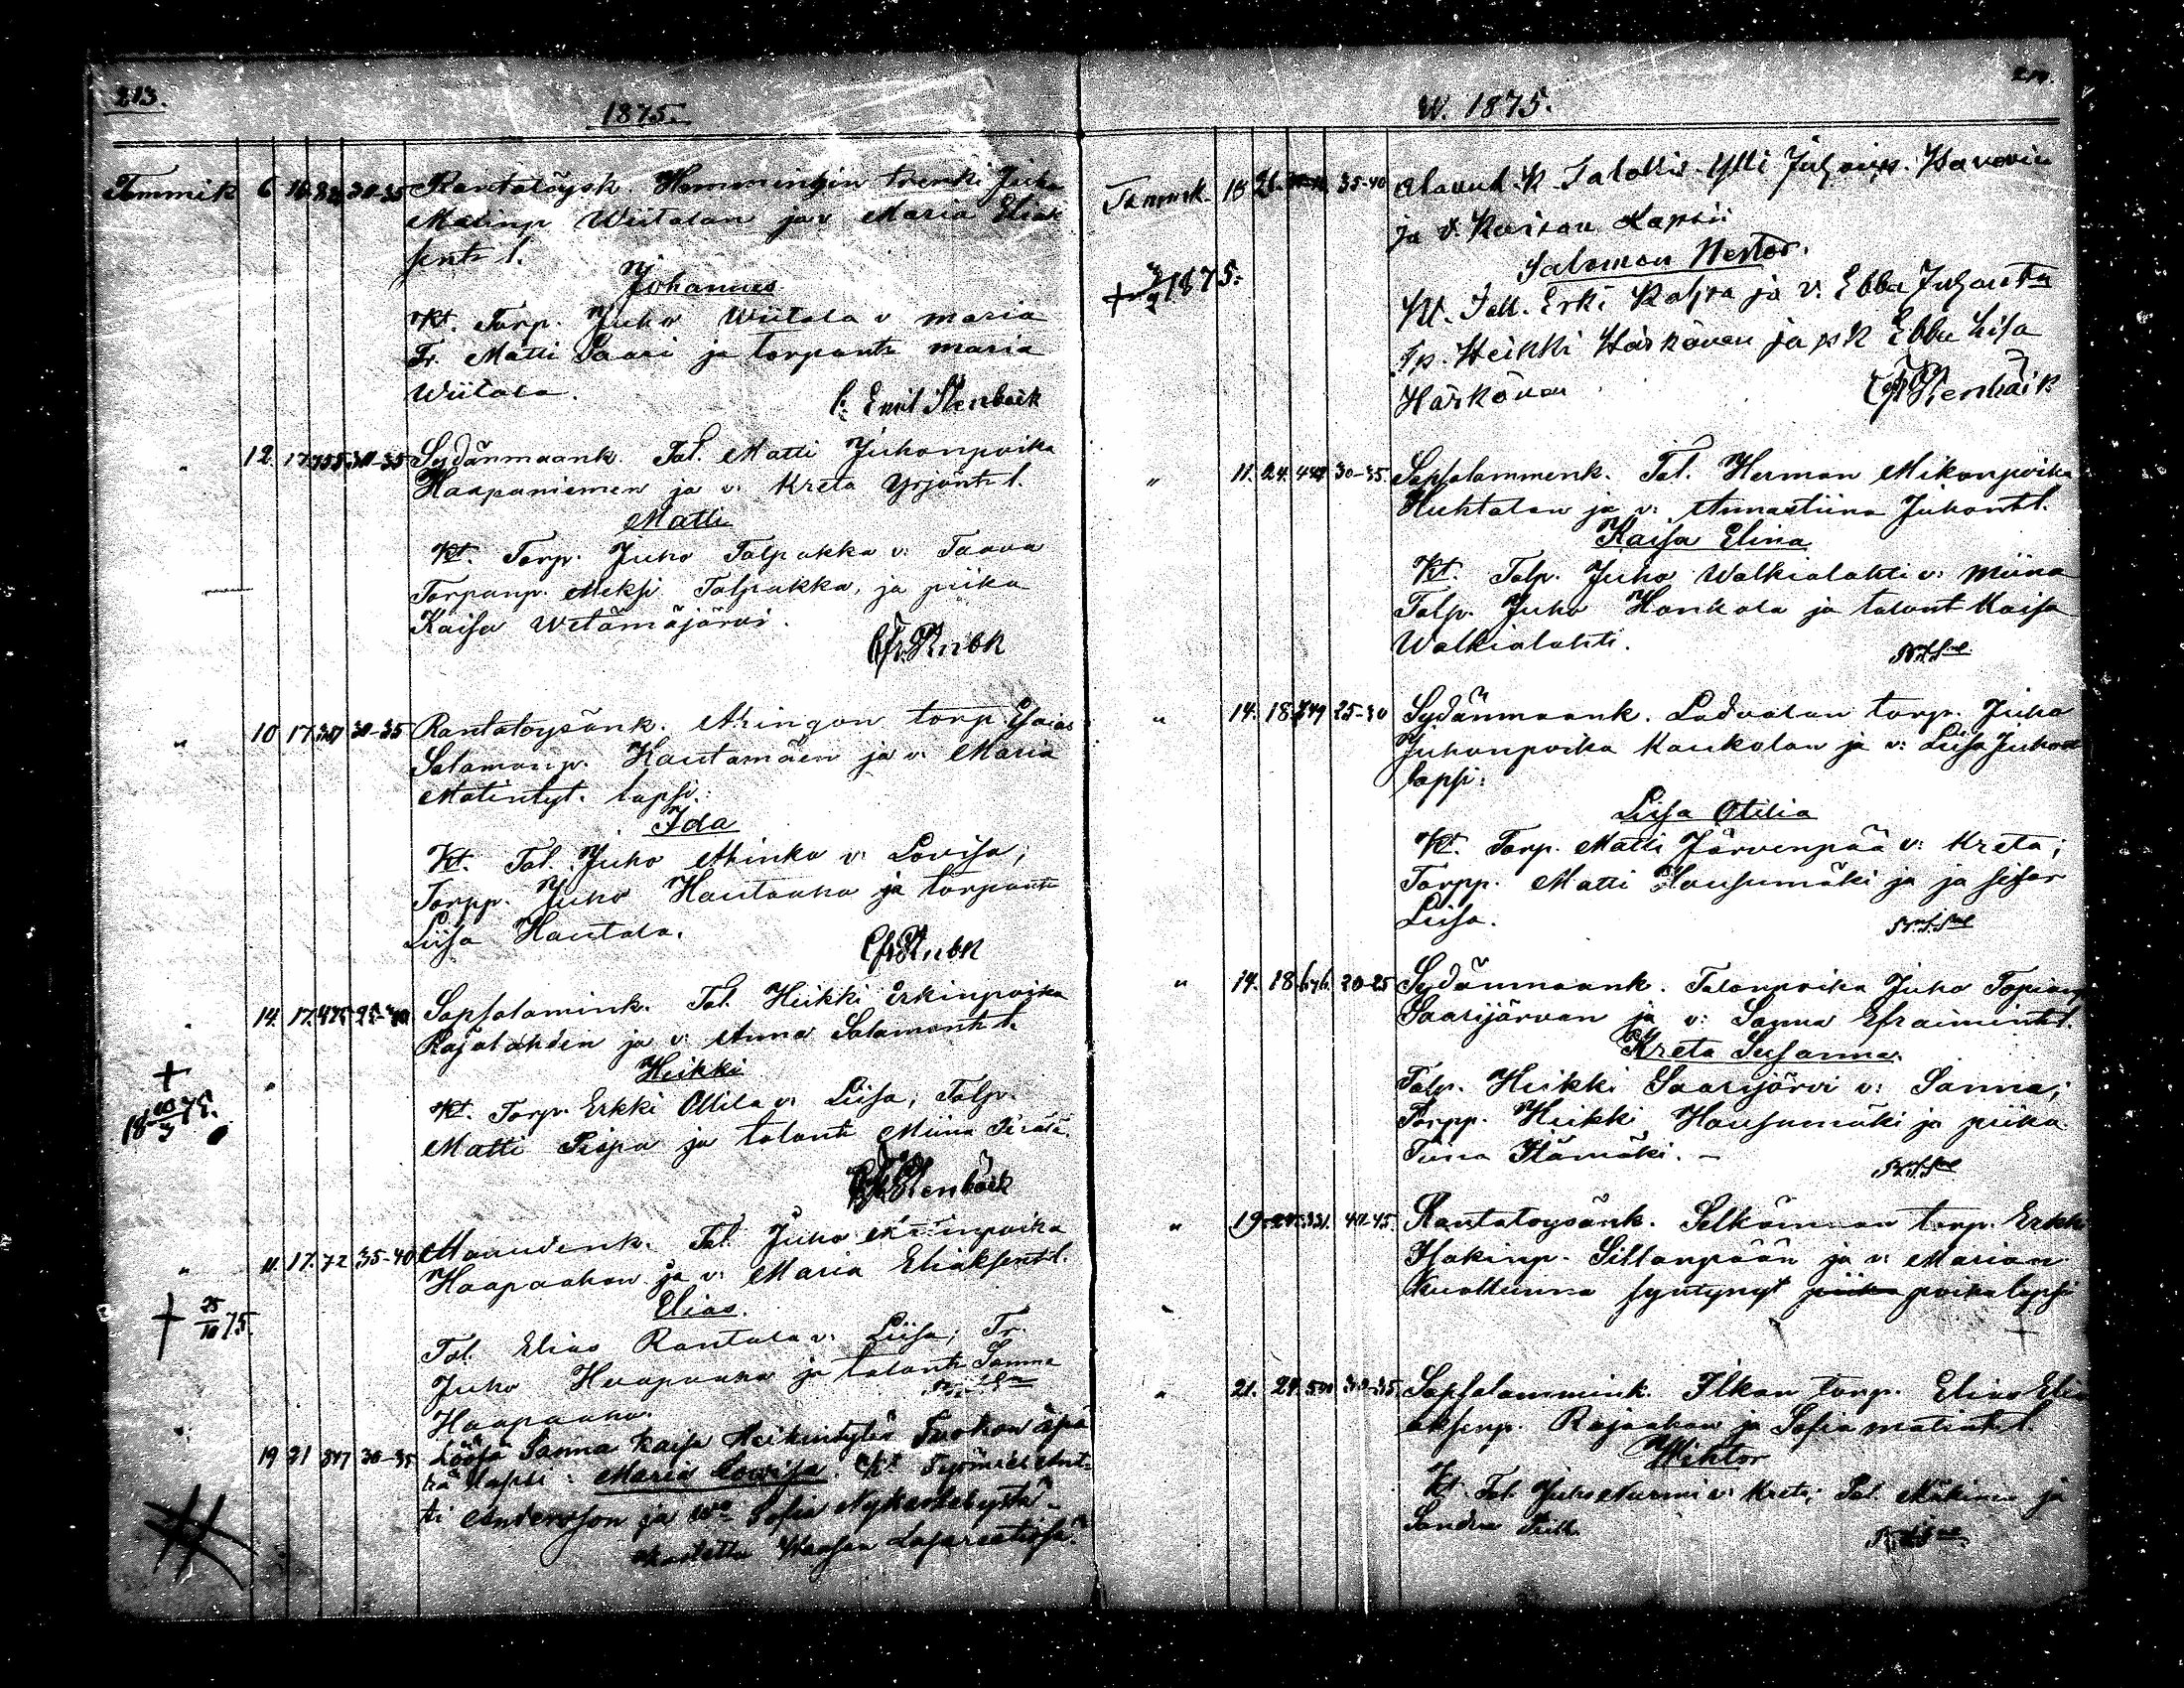 213.
1875.
Tammik 6 16. 30-35 Rantatöysk. Hemmingin trenki Juha
Matinp Wiitalan ja v Maria Eliak
sent l.
Johannes
Kt. Torp. Juho Wiitala v maria
Tr. Matti Saari ja torpant maria
Wiitala.
C: Emil Stenbäck
" 12 17. 755 30-35 Sydänmaank. Tal. Matti Juhonpoika
Haapaniemen ja v: Kreta Yrjönt l.
Matti
Kt. Torp. Juho Talpakka v: Taava
Torpanp. Aleksi Talpakka, ja piika
Kaisa Wetämäjärvi.
" 10 17. 30-35 Rantatoysänk. Ahingon torp. Esaias
Salamonp. Hautamäen ja v: Maria
Matintyt. lapsi:
Ida
Kt. Tal. Juho Ahinko v: Lovisa;
Torpp. Juho Hautaaho ja torpant
Liisa Hautala.
" 14. 17. 475 Sapsalamink. Tal. Heikki Erkinpoika
Rajalahden ja v: Anna Salamont l.
Heikki
Kt. Torp. Erkki Ollila v: Liisa; Talp.
Matti Pispa ja talont Miina
Stenbäck
+
18 75.
" 11. 17. 72 35-40 Tal. Juho
Haapaahon ja v: Maria Eliaksent l.
Elias.
+ 25/10 75.
Tal. Elias Rantala v: Liisa; Tr.
Juho Haapaaho ja talont Sanna
Haapaaho.
19 21 347 30-35 Löösä Sanna Kaisa Heikintytär Tuokon äpä
rä lapsi: Maria Lowisa. Kt Työmies Ant-
ti Andersson ja Wo Sofia Nykarlebystä
Kastettu Waasan Lasaretissa.
W. 1875.
Tammk. 18 21. 35-40 Alavud. K. Talollis. Ylli Juhonp.
ja v. Kaisan Lapsi
Salomon Nestor.
+ 1875.
Kt. Tall. Erki Ratjra ja v: Ebba Juhont
Tp. Heikki Härkönen ja pk Ebba Lisa
Härkönen
Stenbäck
" 11. 24. 30-35. Sapsalammenk. Tal. Herman Mikonpoika
Huhtalan ja v: Annastiina Juhont l.
Kaisa Elina
Kt. Talp. Juho Walkialahti v: Miina
Talp. Juho Hankola ja talont Kaisa
Walkialahti.
" 14. 18. 25-30 Sydänmaank. Ladvalan torp. Juho
Juhonpoika Kaukolan ja v: Liisa Juhont
lapsi:
Liisa Otilia
Kt. Torp. Matti Järvenpää v: Kreta;
Torpp. Matti Hausumäki ja ja sisar
Liisa.
" 14. 18. 20-25 Sydänmaank. Talonpoika Juho Topianp
Saarijärvan ja v: Sanna Efraimint l.
Kreta Susanna.
Talp. Heikki Saarijärvi v: Sanna;
Torpp. Heikki Hausumäki ja piika
Tiina Ylämäki. -
" 19. 331. 40-45. Rantatoysänk. Selkämaan torp. Erkki
Isakinp. Sillanpään ja v: Marian
kuolleena syntynyt piika poikalapsi
+
" 21. 24. 500 30-35. Sapsalammink. Ilkan torp. Elias Eli
aksenp. Rajaahon ja Sofia matint l.
Wihtor
Kt. Tal. Juho Nurmi v: Kreta; Tal. Mäkinen ja
Sandra